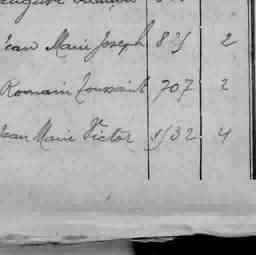 Jean Marie Joseph 821 2
Romain Toussaint 707 2
Jean Marie Victor 1532 4